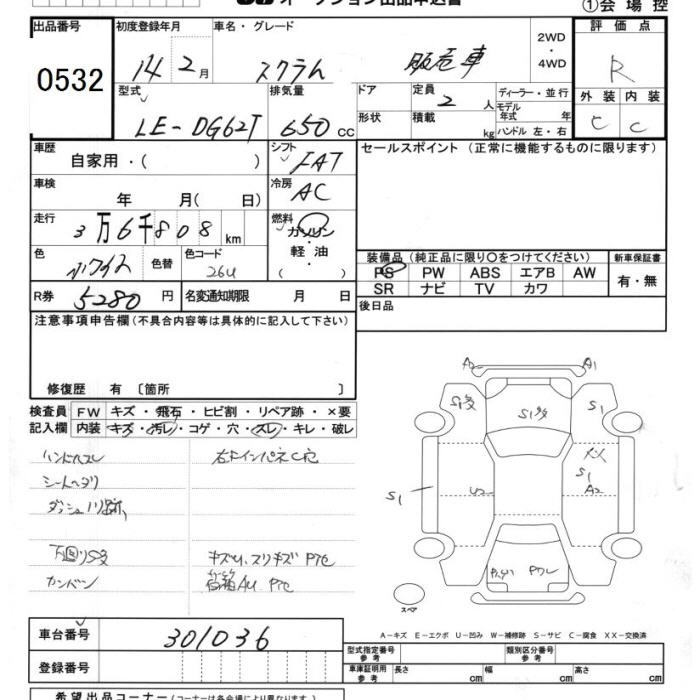 オークション出品申込書
①会場控
出品番号
0532
初度登録年月
車名・グレード
14 2月
スクラム
販売車
2WD
・
4WD
評価点
R
型式
LE-DG62T
排気量
650 cc
ドア
形状
定員
2 人
積載
kg
ディーラー・並行
モデル
年式 年
ハンドル 左・右
外装
内装
C
C
車歴
自家用・( )
シフト
FAT
セールスポイント (正常に機能するものに限ります)
車検
年 月( 日)
冷房
AC
走行
3万6千808 km
燃料
ガソリン
・
軽油
( )
色
ホワイト
色替
色コード
26U
装備品 (純正品に限り○をつけてください)
新車保証書
PS PW ABS エアB AW
SR ナビ TV カワ
有・無
R券
5280 円
名変通知期限 月 日
後日品
注意事項申告欄 (不具合内容等は具体的に記入して下さい)
修復歴 有 〔箇所 〕
検査員
記入欄
FW キズ・飛石・ヒビ割・リペア跡・×要
内装 キズ・汚レ・コゲ・穴・スレ・キレ・破レ
ハンドルスレ
シートヘタリ
ダッシュノリ跡
下回りS多
A2
A1
S1多
S1多
S1
XX
S1
A2
S1
U2
スペア
A-キズ E-エクボ U-凹み W-補修跡 S-サビ C-腐食 XX-交換済
車台番号
301036
登録番号
型式指定番号
参考
類別区分番号
参考
車庫証明用
参考
長さ cm
幅 cm
高さ cm
希望出品コーナー (コーナーは各会場により異なります)